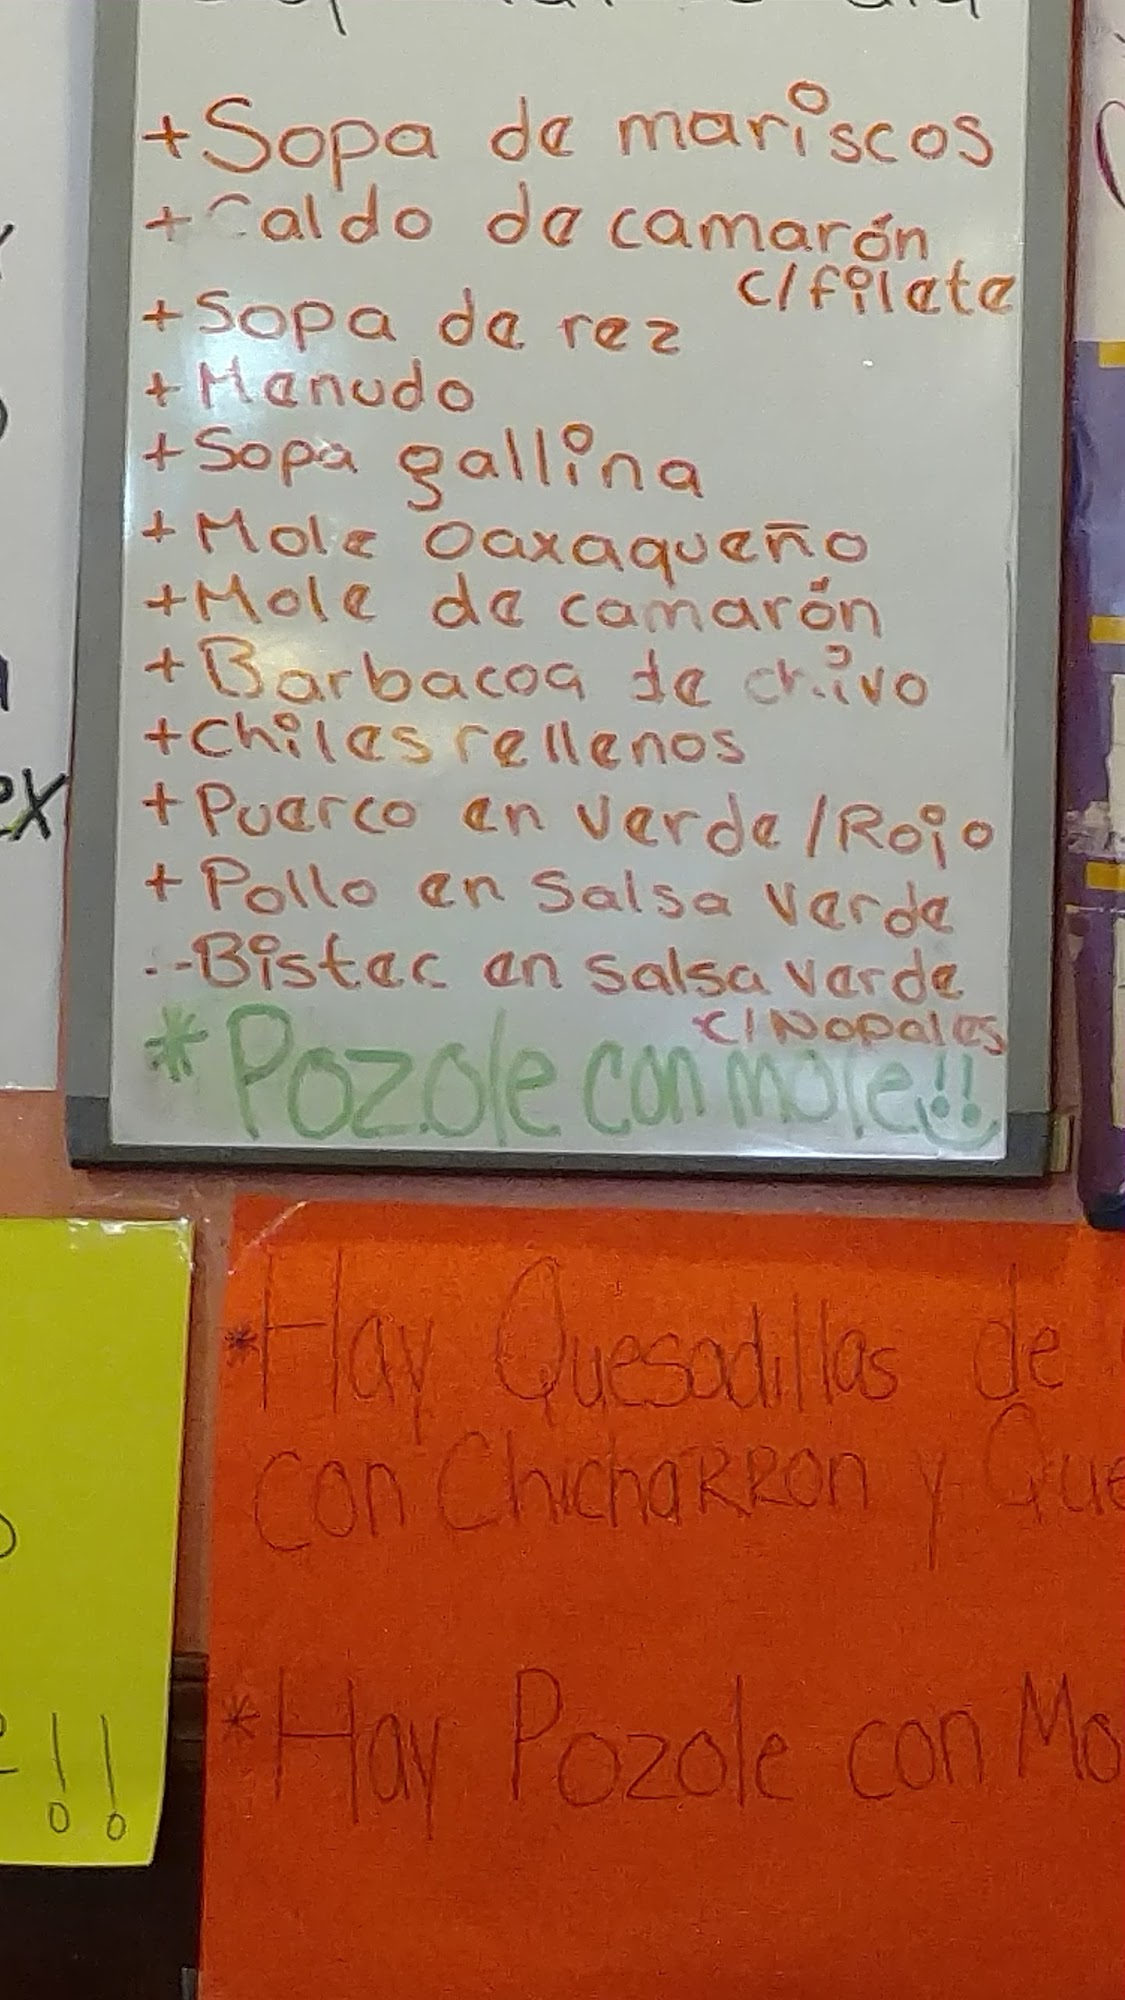 + Sopa de mariscos
+ Caldo de camarón
c/filete
+ Sopa de rez
+ Menudo
+ Sopa gallina
+ Mole Oaxaqueño
+ Mole de camarón
+ Barbacoa de chivo
+ Chiles rellenos
+ Puerco en verde/Rojo
+ Pollo en salsa verde
- Bistec en salsa verde
c/Nopales
* Pozole con mole!!
* Hay Quesadillas de
con ChichaRRon y Que
* Hay Pozole con Mo